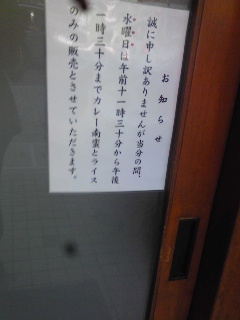 お知らせ
誠に申し訳ありませんが当分の間、
水曜日は午前十一時三十分から午後
一時三十分までカレー南蛮とライス
のみの販売とさせていただきます。